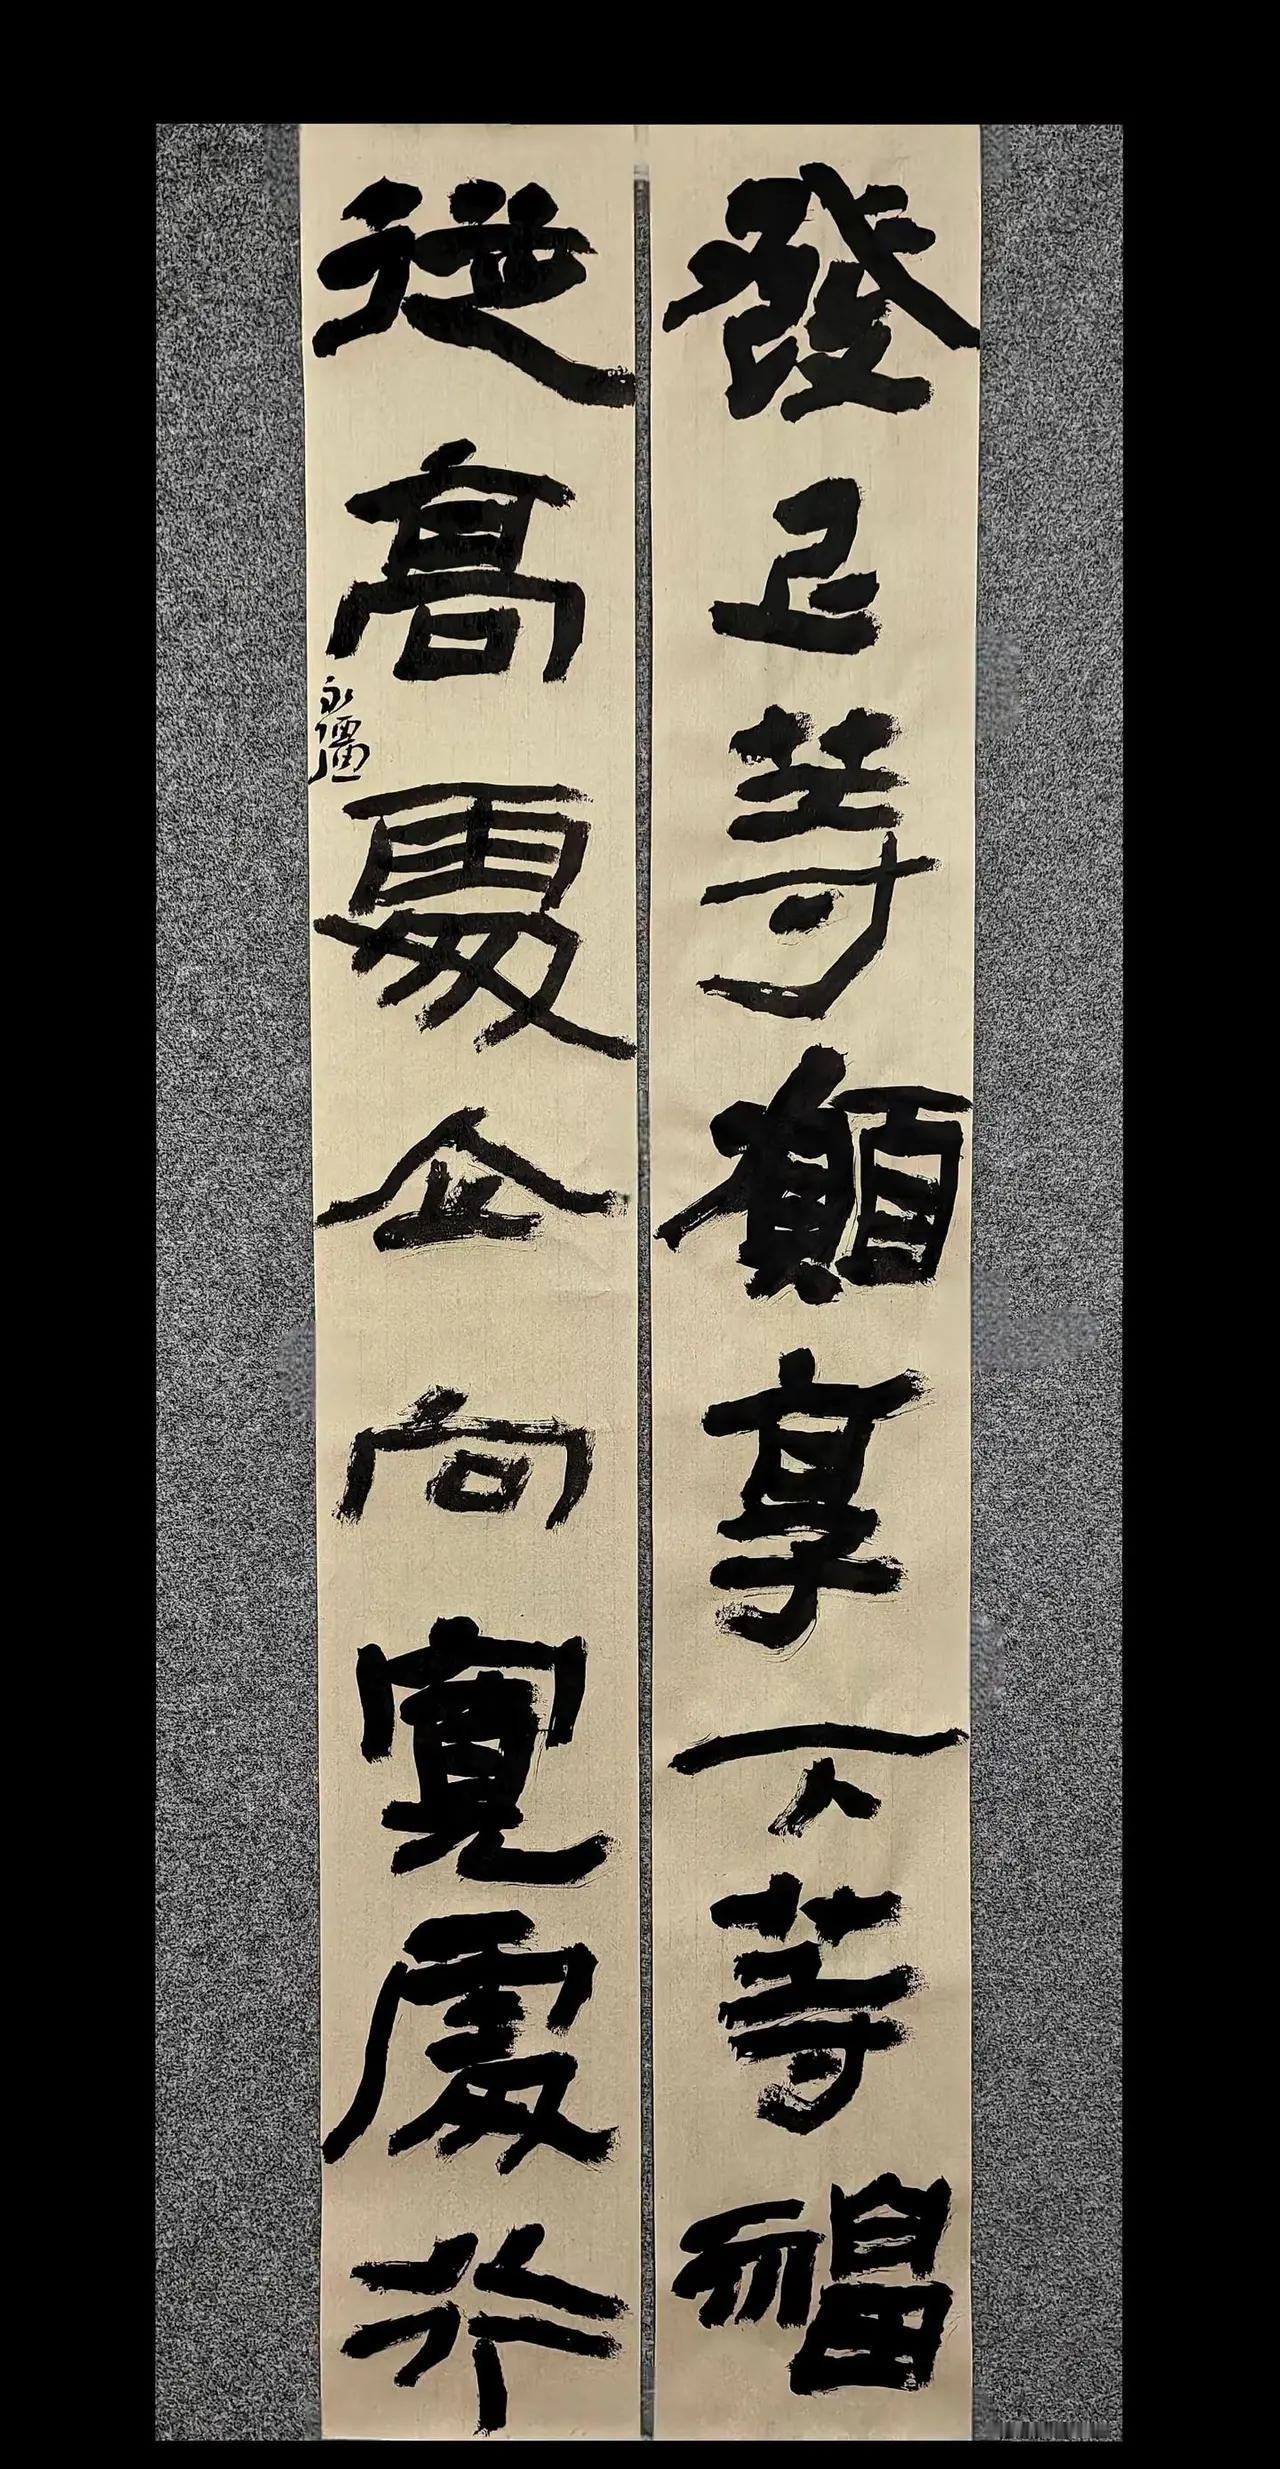 發上等願享下等福
從高處立向寬處行
永彊